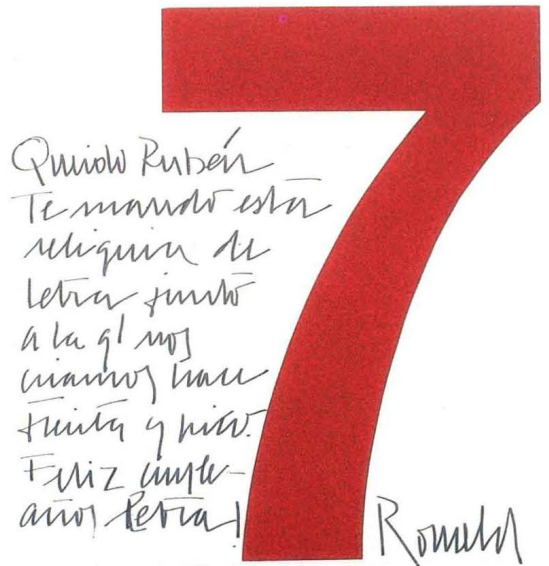 7
Querido Rubén
Te mando esta
reliquia de
letra junto
a la q' nos
criamos hace
treinta y pico.
Feliz cumple-
años Letra!